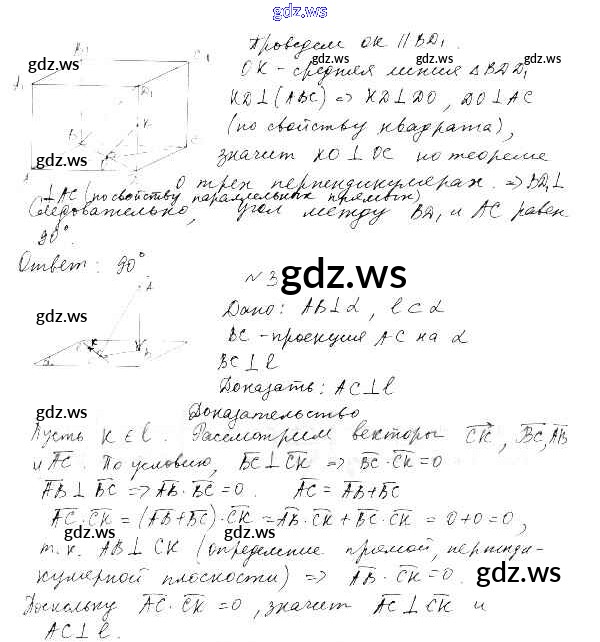 gdz.ws
Проведем OK || BD₁.
gdz.ws gdz.ws
OK - средняя линия △ BDD₁
KD⊥(ABC) => KD⊥DO, DO⊥AC
(по свойству квадрата),
gdz.ws gdz.ws
значит KO⊥OC по теореме
о трех перпендикулярах. => BD₁⊥
⊥AC (по свойству параллельных прямых)
Следовательно, угол между BD₁ и AC равен
90°.
Ответ: 90°
№ 3 gdz.ws
gdz.ws
Дано: AB⊥α, l⊂α
BC - проекция AC на α
BC⊥l
Доказать: AC⊥l
gdz.ws gdz.ws
Доказательство
Пусть K∈l. Рассмотрим векторы CK, BC, AB
и AC. По условию, BC⊥CK => BC·CK=0
AB⊥BC => AB·BC=0. AC=AB+BC
AC·CK=(AB+BC)·CK=AB·CK+BC·CK=0+0=0,
gdz.ws
т.к. AB⊥CK (определение прямой, перпенди-
кулярной плоскости) => AB·CK=0.
gdz.ws
Поскольку AC·CK=0, значит AC⊥CK и
gdz.ws
AC⊥l.